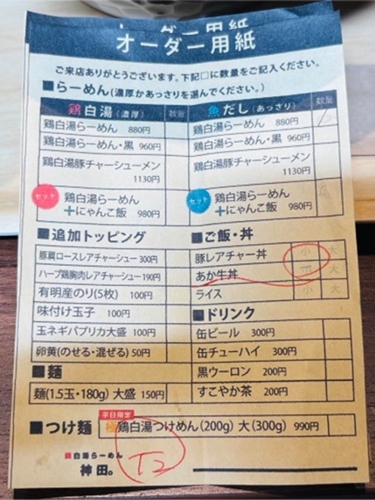 オーダー用紙
オーダー用紙
ご来店ありがとうございます。下記□に数量をご記入ください。
■らーめん(濃厚かあっさりを選んでください。)
鶏白湯(濃厚) 数量
鶏白湯らーめん 880円
鶏白湯らーめん・黒 960円
鶏白湯豚チャーシューメン
1130円
セット 鶏白湯らーめん
+にゃんこ飯 980円
魚だし(あっさり) 数量
鶏白湯らーめん 880円
鶏白湯らーめん・黒 960円
鶏白湯豚チャーシューメン
1130円
セット 鶏白湯らーめん
+にゃんこ飯 980円
■追加トッピング
豚肩ロースレアチャーシュー 300円
ハーブ鶏胸肉レアチャーシュー 190円
有明産のり(5枚) 100円
味付け玉子 100円
玉ネギパプリカ大盛 100円
卵黄(のせる・混ぜる) 50円
■麺
麺(1.5玉・180g) 大盛 150円
■ご飯・丼
豚レアチャー丼 小 大
あか牛丼 大
ライス 小 大
■ドリンク
缶ビール 300円
缶チューハイ 300円
黒ウーロン 200円
すこやか茶 200円
■つけ麺
平日限定
鶏白湯つけめん(200g) 大(300g) 990円
鶏白湯らーめん
神田。
T2